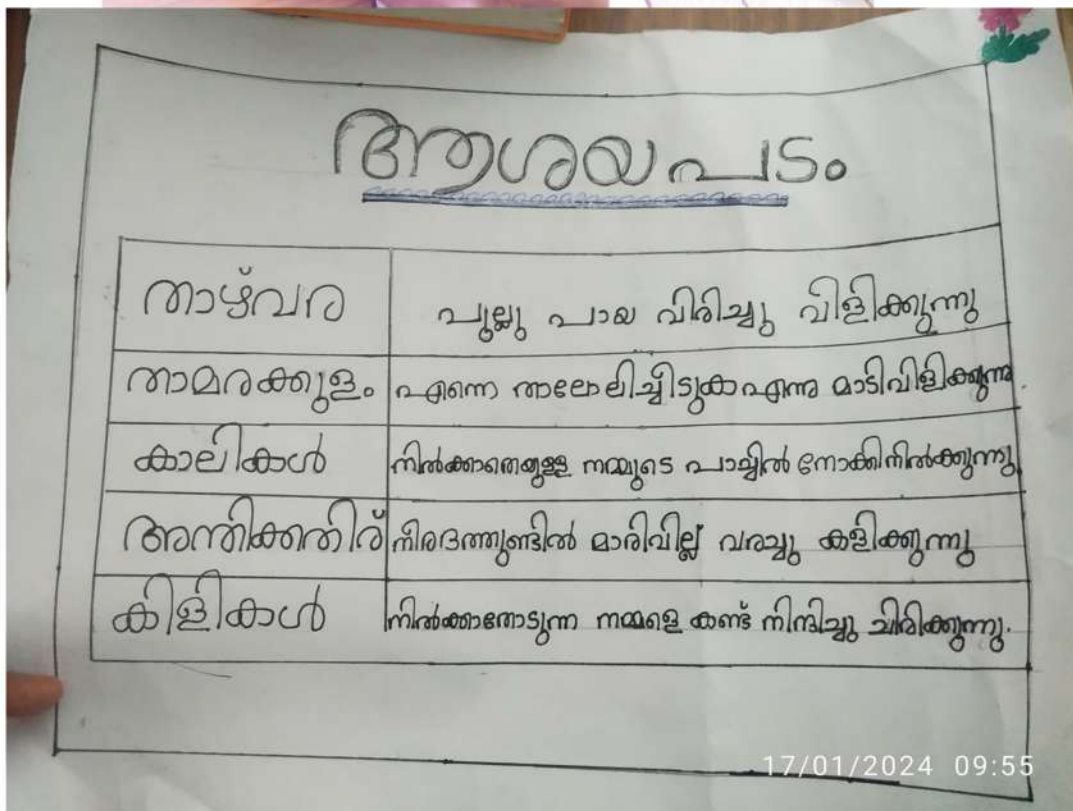 ആശയപടം
താഴ്‌വര പുല്ലു പായ വിരിച്ചു വിളിക്കുന്നു
താമരക്കുളം എന്നെ താലോലിച്ചീടുക എന്നു മാടിവിളിക്കുന്നു.
കാലികൾ നിൽക്കാതെയുള്ള നമ്മുടെ പാച്ചിൽ നോക്കിനിൽക്കുന്നു
അന്തിക്കതിര് നീരദത്തുണ്ടിൽ മാരിവില്ല് വരച്ചു കളിക്കുന്നു
കിളികാൾ നിൽക്കാതോടുന്ന നമ്മളെ കണ്ട് നിന്ദിച്ചു ചിരിക്കുന്നു.
17/01/2024 09:55